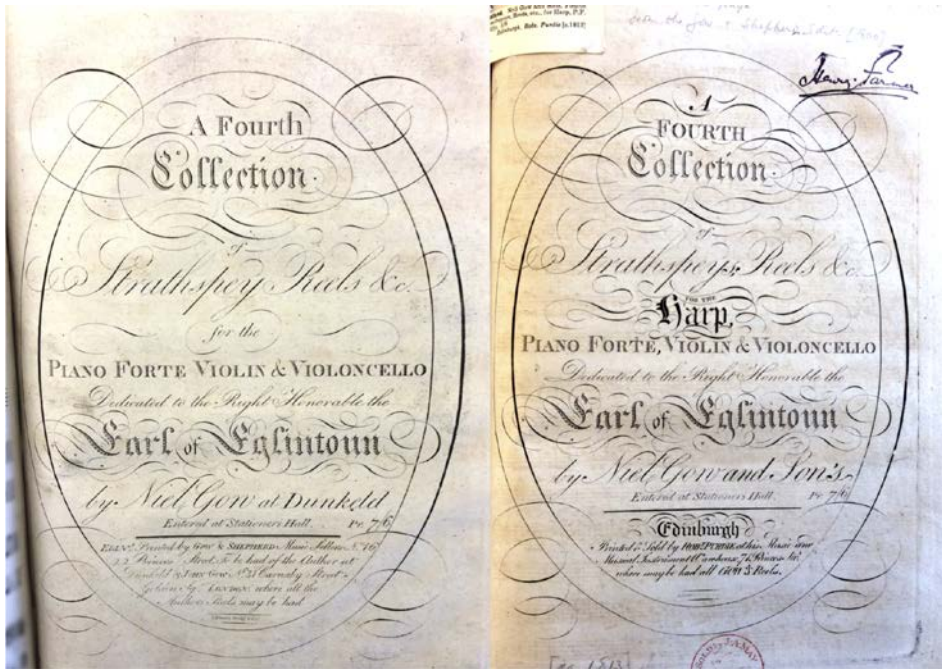 A Fourth
Collection
of
Strathspey Reels &c.
for the
PIANO FORTE VIOLIN & VIOLONCELLO
Dedicated to the Right Honorable the
Earl of Eglintoun
by Niel Gow at Dunkeld
Entered at Stationers Hall. Pr. 7/6
EDINr. Printed by GOW & SHEPHERD Music Sellers No. 16
Princess Street, to be had of the Author at
Dunkeld & JOHN GOW No. 31 Carnaby Street
LONDON where all the
Authors Reels may be had
Edinburgh, Robt. Purdie [c.1813]
Henry Farmer
A
FOURTH
Collection
of
Strathspeys, Reels &c.
FOR THE
Harp,
PIANO FORTE, VIOLIN & VIOLONCELLO
Dedicated to the Right Honorable the
Earl of Eglintoun
by Niel Gow and Son's
Entered at Stationers Hall. Pr. 7/6
Edinburgh
Printed & Sold by ROBt. PURDIE at his Music and
Musical Instrument Warehouse, 71 Princes Str.
where may be had all GOW'S Reels.